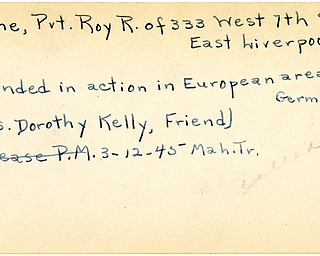 ne, Pvt. Roy R. of 333 West 7th
East Liverpoo
nded in action in European area
Germ
s. Dorothy Kelly, Friend)
ease P.M. 3-12-45 Mah. Tr.